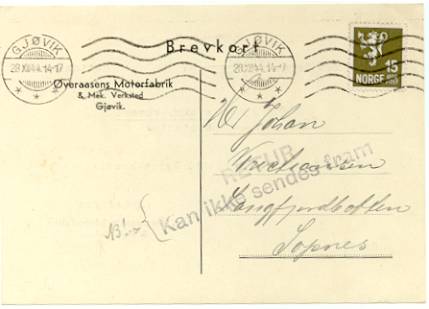 Brevkort
GJØVIK
28 XII 44. 14-17
GJØVIK
28 XII 44. 14-17
NORGE 15
Øveraasens Motorfabrik
& Mek. Verksted
Gjøvik.
Hr Johan
RETUR
Kan ikke sendes fram
Langfjordbotten
Sopnes